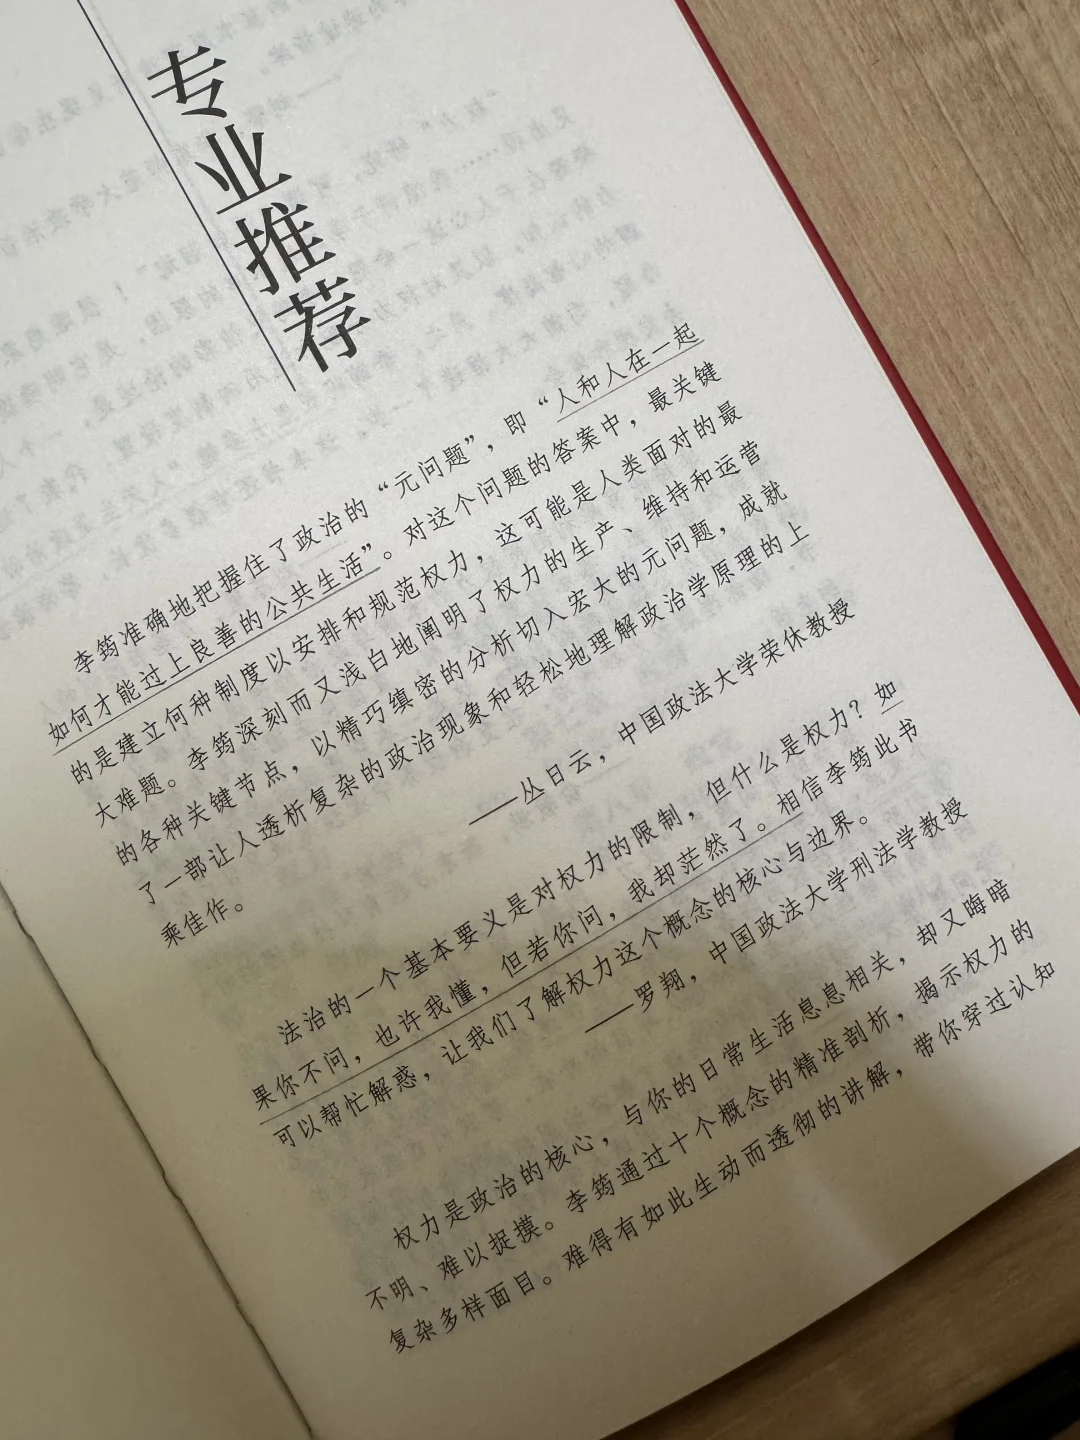 专业推荐
李筠准确地把握住了政治的“元问题”，即“人和人在一起
如何才能过上良善的公共生活”。对这个问题的答案中，最关键
的是建立何种制度以安排和规范权力，这可能是人类面对的最
大难题。李筠深刻而又浅白地阐明了权力的生产、维持和运营
的各种关键节点，以精巧缜密的分析切入宏大的元问题，成就
了一部让人透析复杂的政治现象和轻松地理解政治学原理的上
乘佳作。
——丛日云，中国政法大学荣休教授
法治的一个基本要义是对权力的限制，但什么是权力？如
果你不问，也许我懂，但若你问，我却茫然了。相信李筠此书
可以帮忙解惑，让我们了解权力这个概念的核心与边界。
——罗翔，中国政法大学刑法学教授
权力是政治的核心，与你的日常生活息息相关，却又晦暗
不明、难以捉摸。李筠通过十个概念的精准剖析，揭示权力的
复杂多样面目。难得有如此生动而透彻的讲解，带你穿过认知